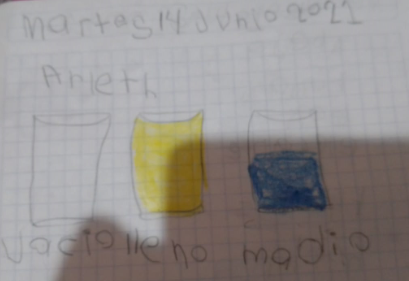 martes 14 Junio 2021
Arleth
vacio lleno madio